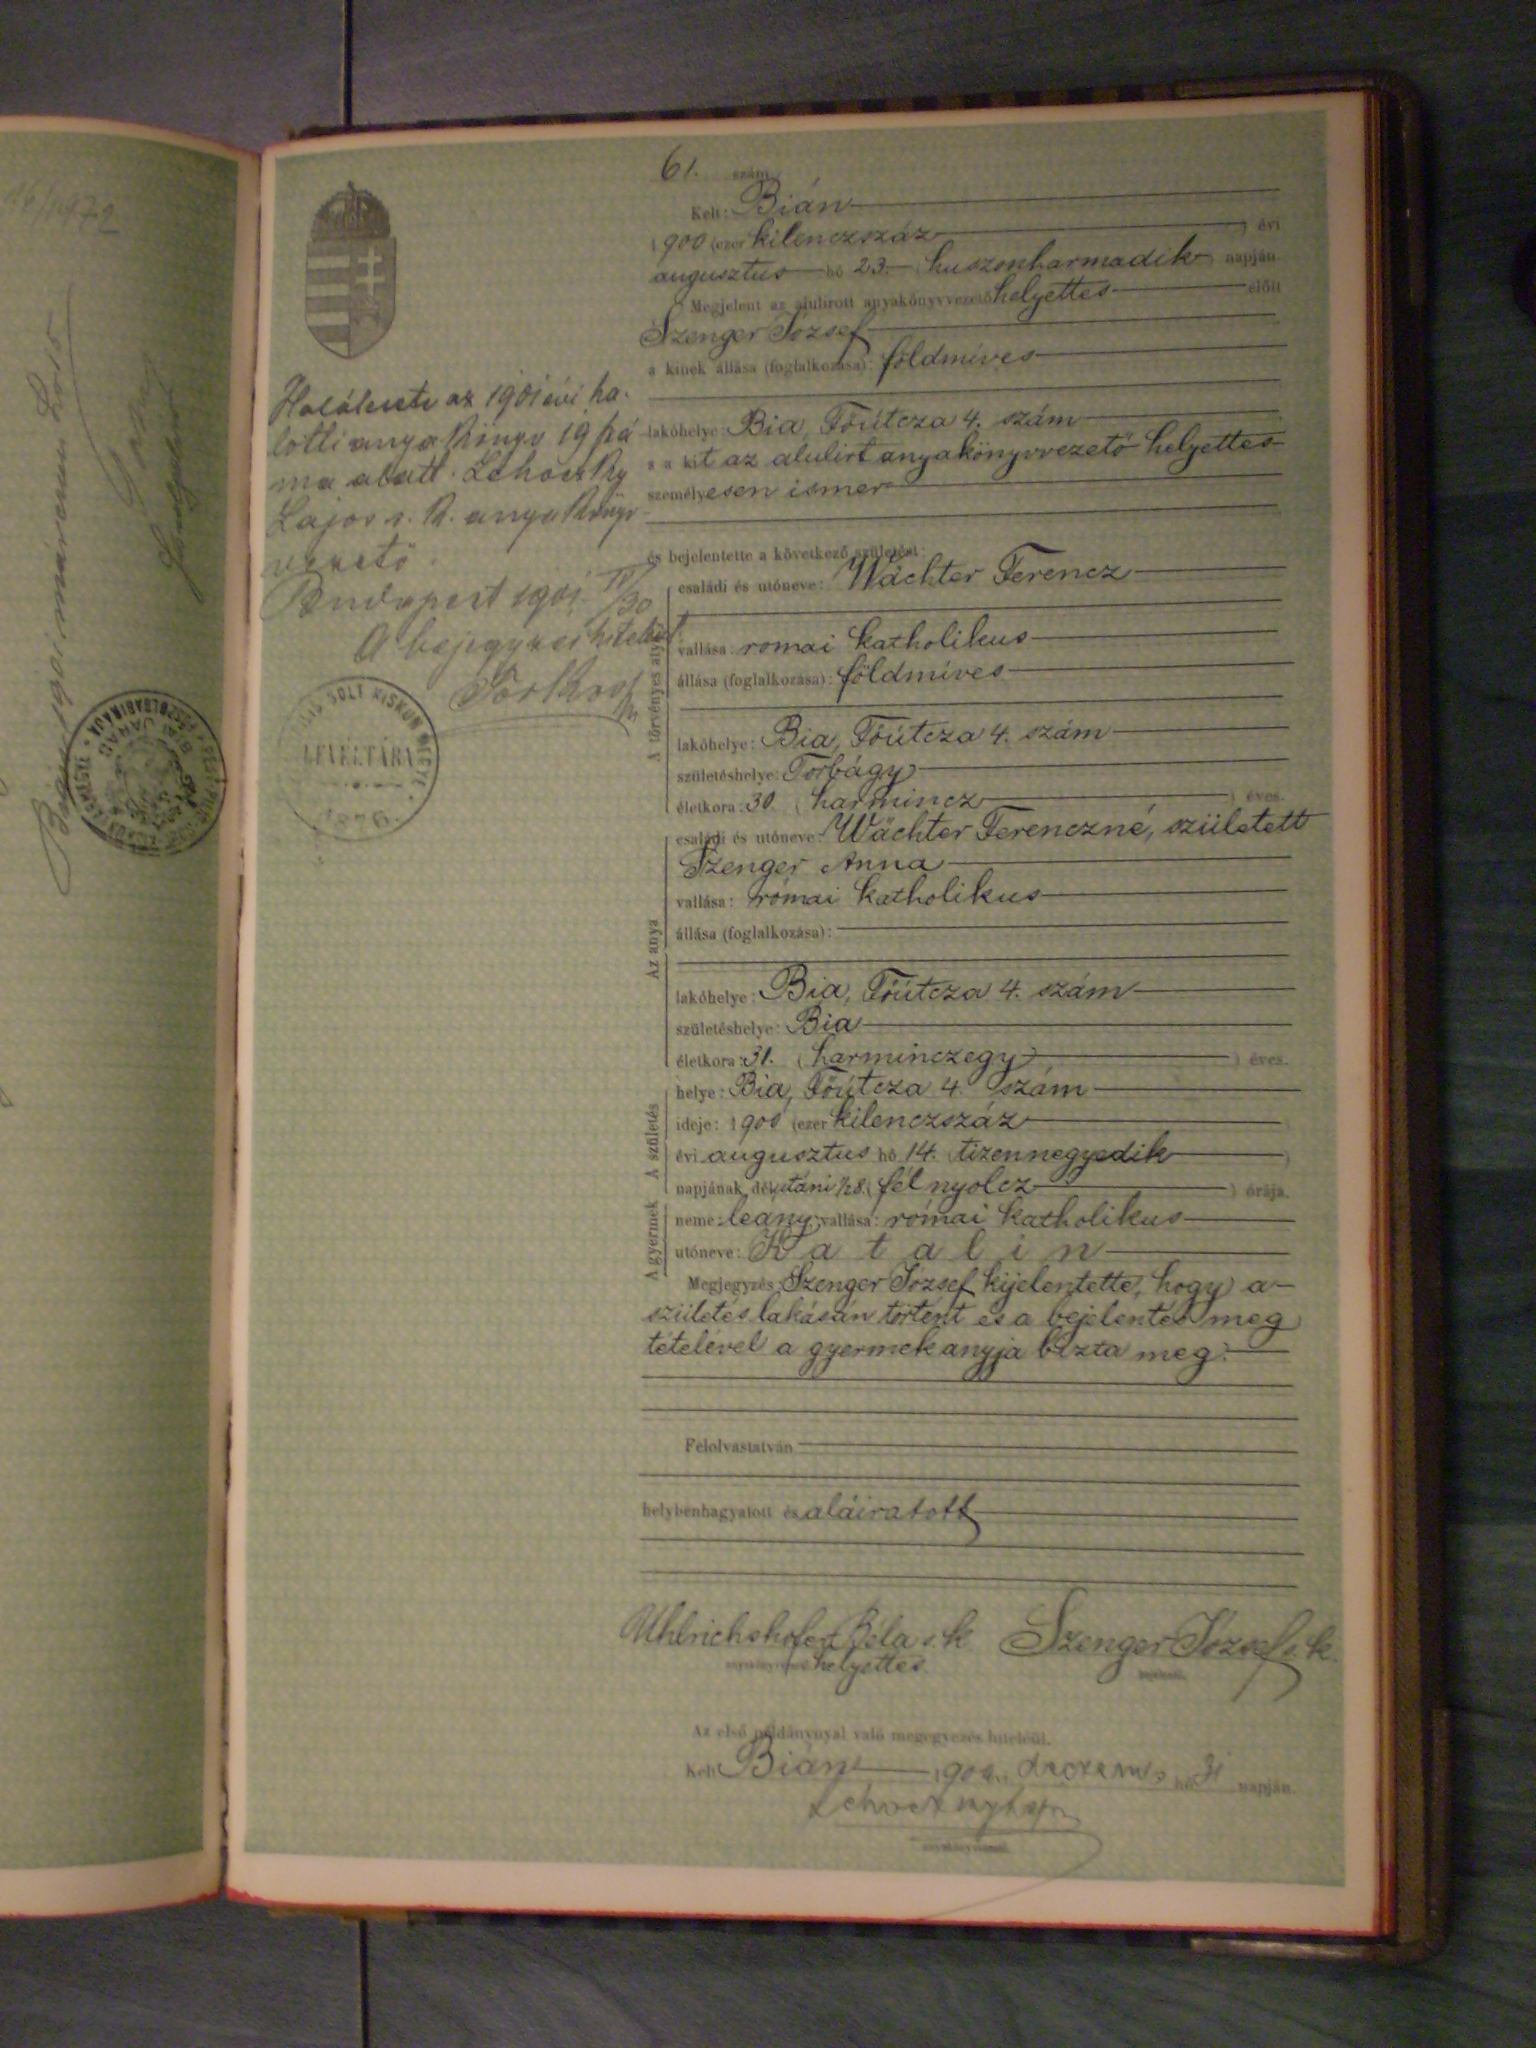 61. szám
Kelt: Bián
1900 (ezer kilenczszáz) évi
augusztus hó 23. huszonharmadik napján.
Megjelent az alulirott anyakönyvvezető helyettes előtt
Szenger József
a kinek állása (foglalkozása): földmíves
lakóhelye: Bia, Főútcza 4. szám
s a kit az alulirt anyakönyvvezető helyettes
személyesen ismer
és bejelentette a következő születést:
A törvényes atya
családi és utóneve: Wächter Ferencz
vallása: romai katholikus
állása (foglalkozása): földmíves
lakóhelye: Bia, Főútcza 4. szám
születéshelye: Torbágy
életkora: 30. (harmincz) éves.
Az anya
családi és utóneve: Wächter Ferenczné, született
Szenger Anna
vallása: római katholikus
állása (foglalkozása):
lakóhelye: Bia, Főútcza 4. szám
születéshelye: Bia
életkora: 31. (harminczegy) éves.
A születés
helye: Bia, Főútcza 4. szám
ideje: 1900 (ezer kilenczszáz
évi augusztus hó 14. tizennegyedik)
napjának délutáni 1/28. (fél nyolcz) órája.
A gyermek
neme: leány; vallása: római katholikus
utóneve: Katalin
Megjegyzés: Szenger József kijelentette, hogy a
születés lakásán történt és a bejelentés meg
tételével a gyermek anyja bízta meg.
Felolvastatván
helybenhagyatott és aláiratott
Uhlrichshofer Béla s. k. Szenger József s. k.
helyettes
Az első példánynyal való megegyezés hiteléül.
Kelt Bián 1900. hó 31 napján.
Halálesete az 1901 évi ha-
lotti anyakönyv 19 szá
ma alatt. Lehoczky
Lajos s. k. anyakönyv-
vezető.
Budapest 1901. IV/30
A bejegyzés hiteléül
SOLT KISKUN MEGYE
LEVÉLTÁRA
1876.
16/1972